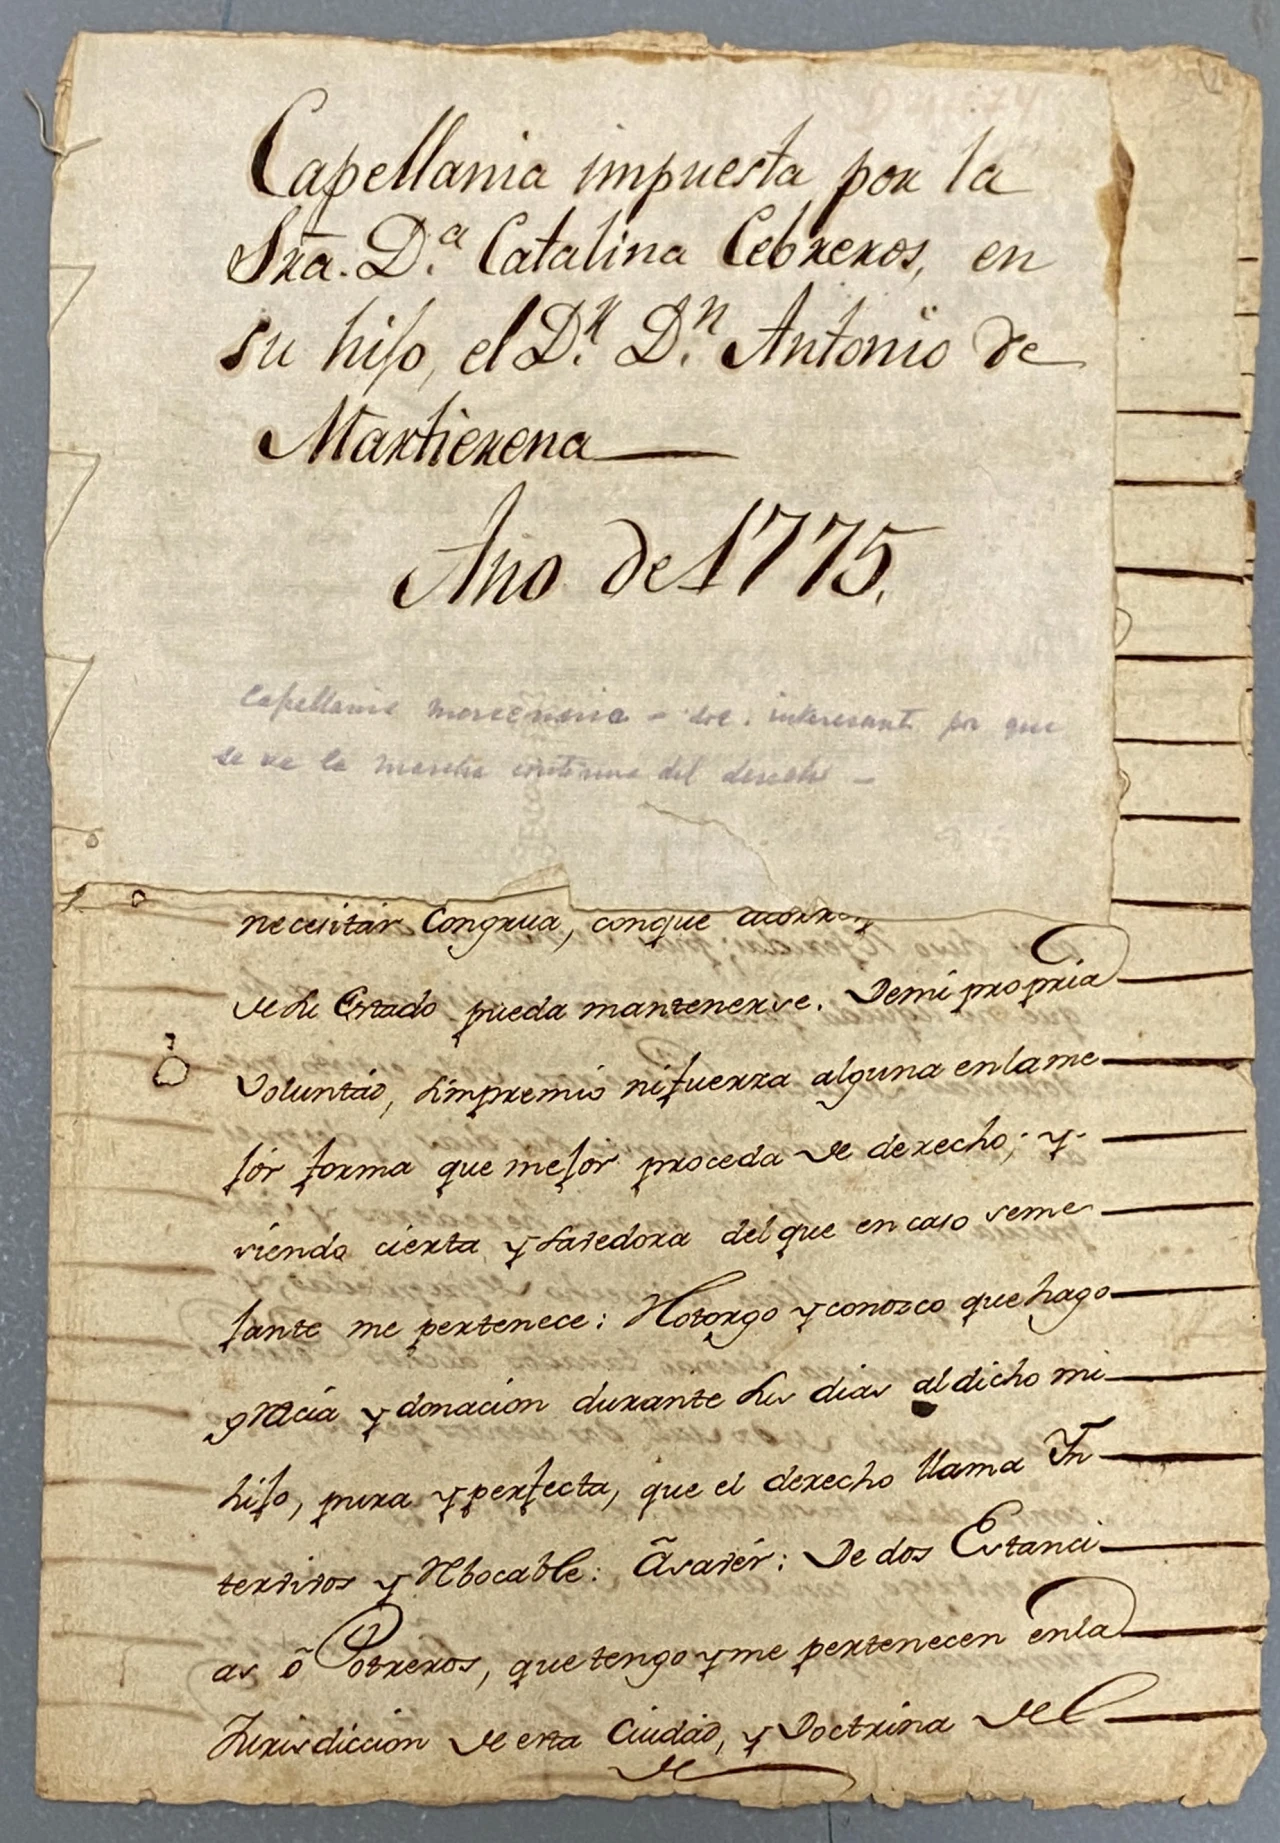 Capellania impuesta por la
Sra. D.ª Catalina Cebreros, en
su hijo, el D.r D.n Antonio de
Martierena
Año de 1775.
Capellania mercenaria - doc. interesante por que
se ve la marcha continua del derecho -
necesitár Congrua, conque
de Su Estado pueda mantenerse. Demi propria
Voluntad, Sinpremio nifuerza alguna enlame
jór forma que mejór proceda de derecho; y
siendo cierta y Savedora delque en caso seme
jante me pertenece: Hotorgo y conozco quehago
gracia y donacion durante Sus dias aldicho mi
hijo, pura y perfecta, que el derecho llama Yn
tervivos y Rbocable: ã Savér: De dos Estanci
as õ Potreros, que tengo yme pertenecen enla
Jurisdiccion de esta Ciudad, y Doctrina del
de